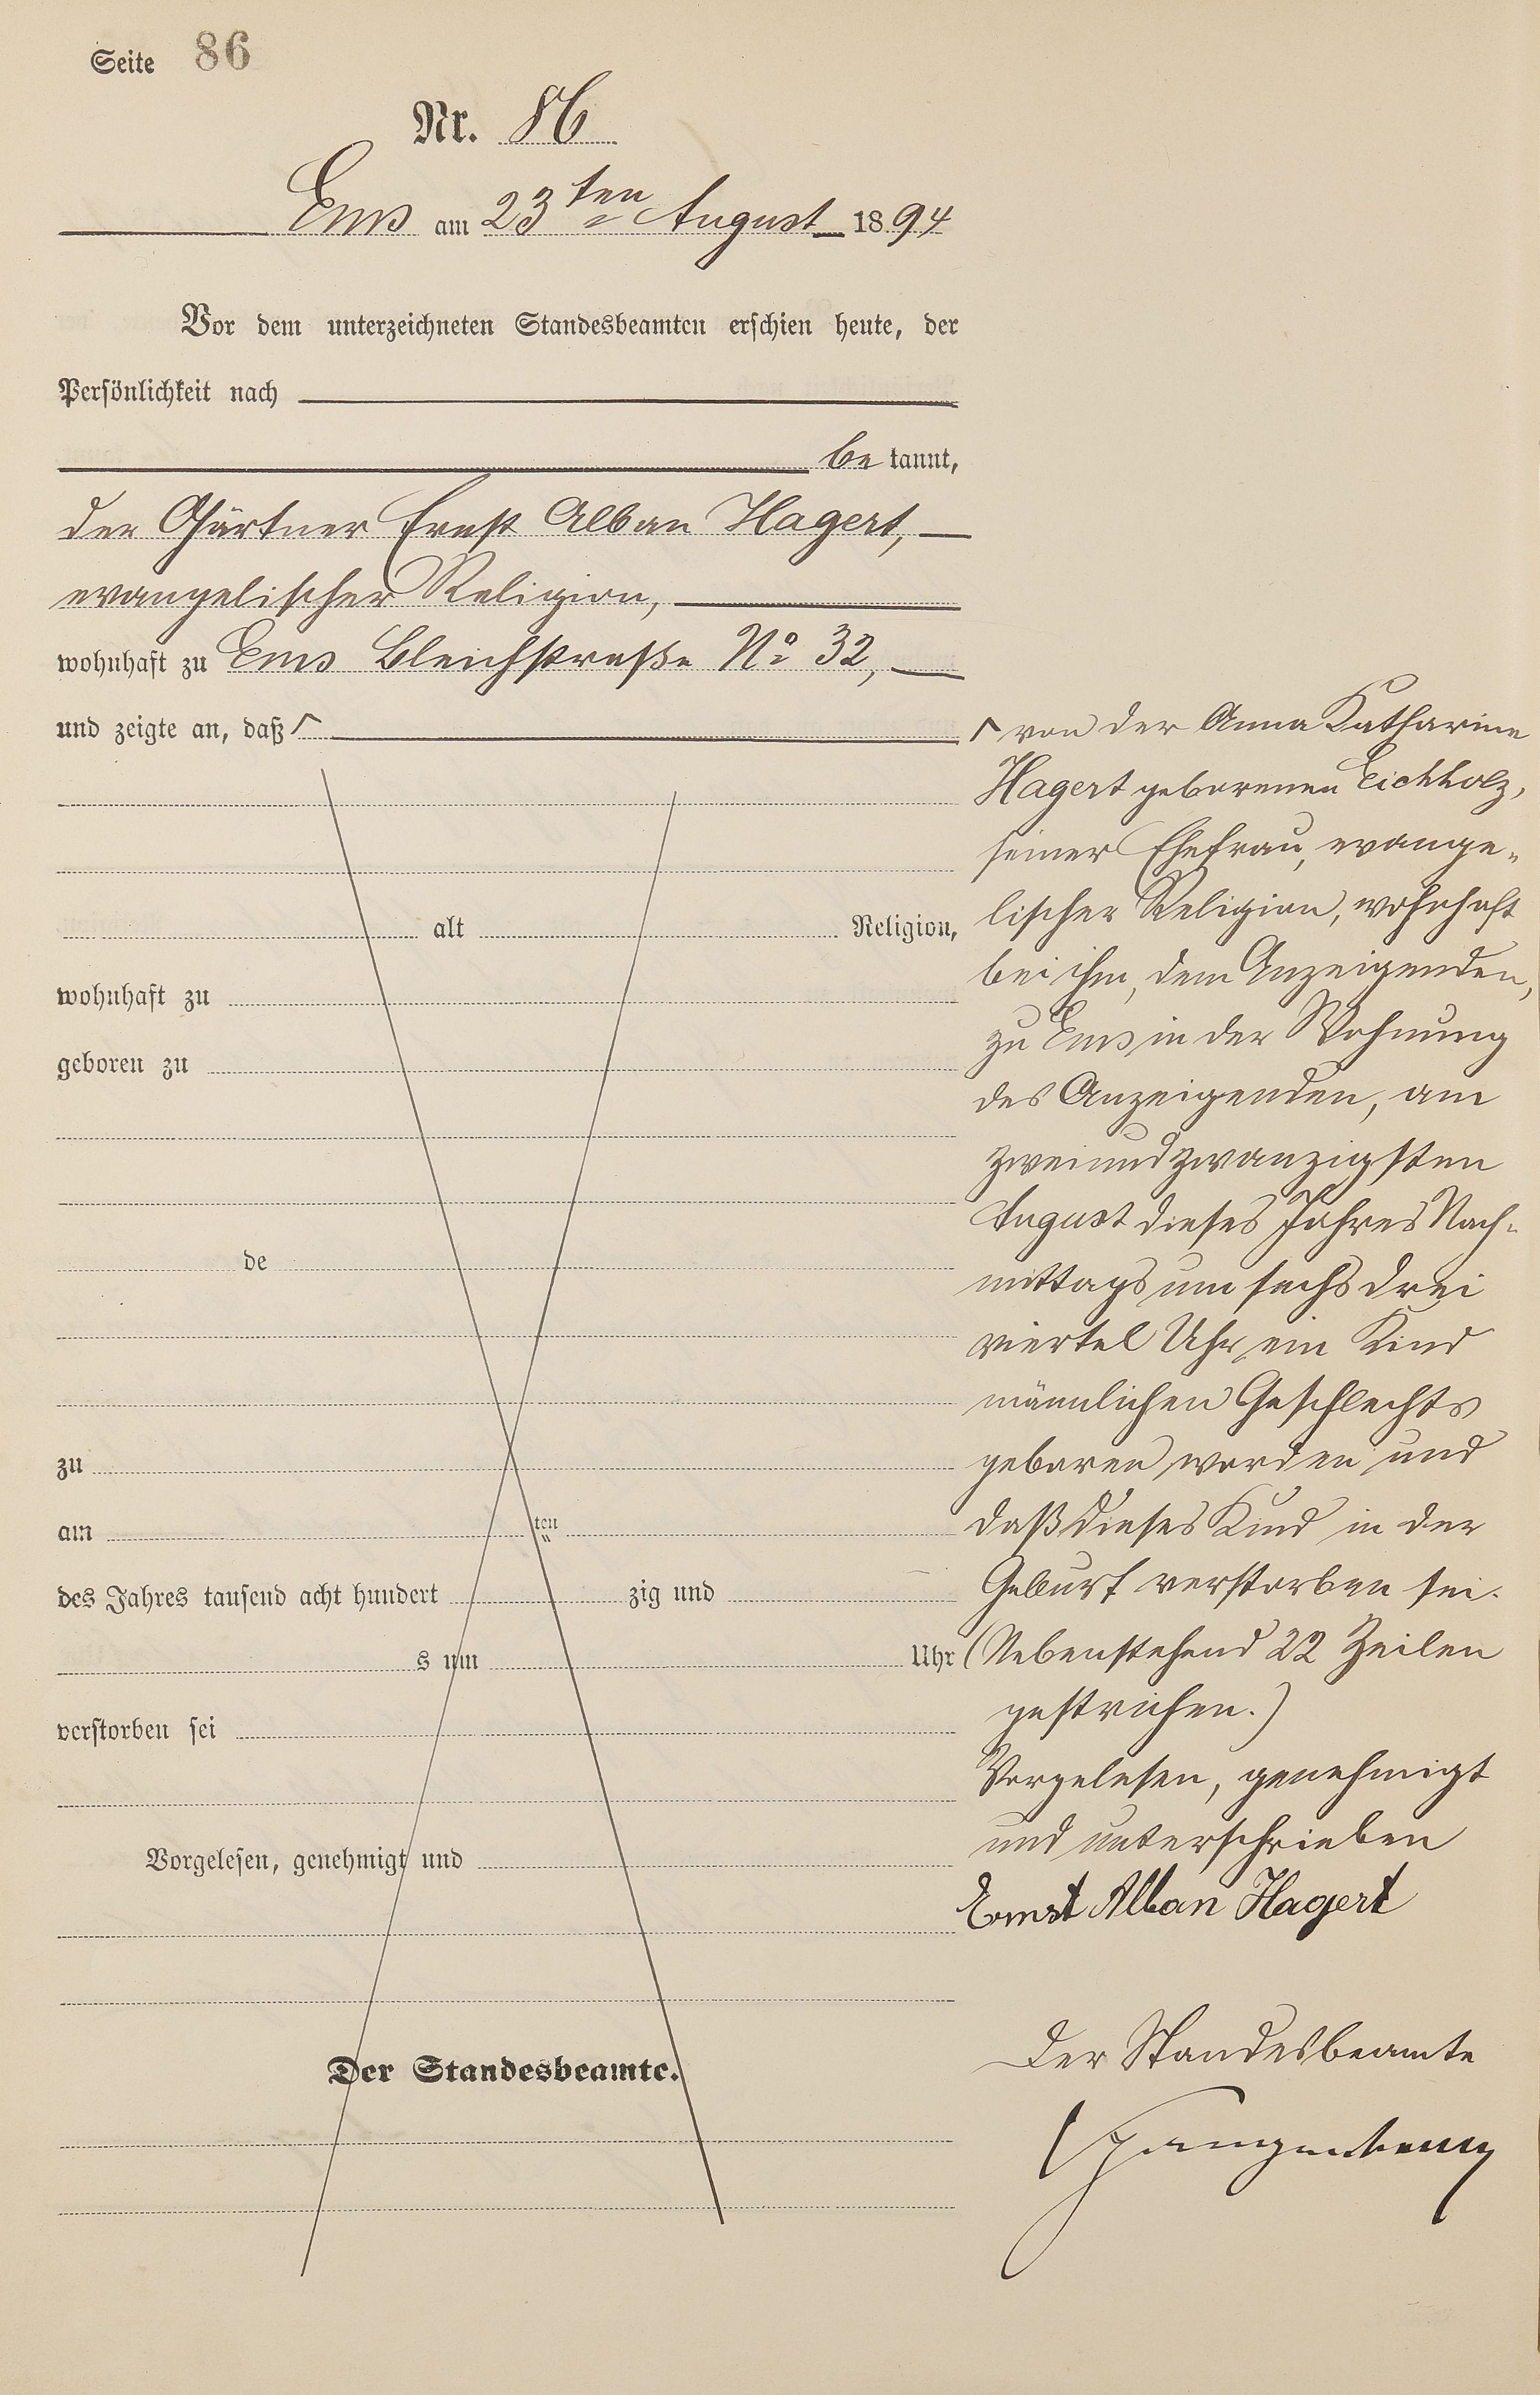 Seite 86
Nr. 86
Ems am 23ten August 1894
Vor dem unterzeichneten Standesbeamten erschien heute, der
Persönlichkeit nach
be kannt,
der Gärtner Ernst Alban Hagert,
evangelischer Religion,
wohnhaft zu Ems Bleichstraße No 32,
und zeigte an, daß ⌈
alt Religion,
wohnhaft zu
geboren zu
de
zu
am ten
des Jahres tausend acht hundert zig und
s um Uhr
verstorben sei
Vorgelesen, genehmigt und
Der Standesbeamte.
⌈ von der Anna Katharine
Hagert geborenen Eichholz,
seiner Ehefrau, evange-
lischer Religion, wohnhaft
bei ihm, dem Anzeigenden,
zu Ems in der Wohnung
des Anzeigenden, am
zweiundzwanzigsten
August dieses Jahres Nach-
mittags um sechs drei
viertel Uhr ein Kind
männlichen Geschlechts
geboren worden und
daß dieses Kind in der
Geburt verstorben sei.
(Nebenstehend 22 Zeilen
gestrichen.)
Vorgelesen, genehmigt
und unterschrieben
Ernst Alban Hagert
Der Standesbeamte